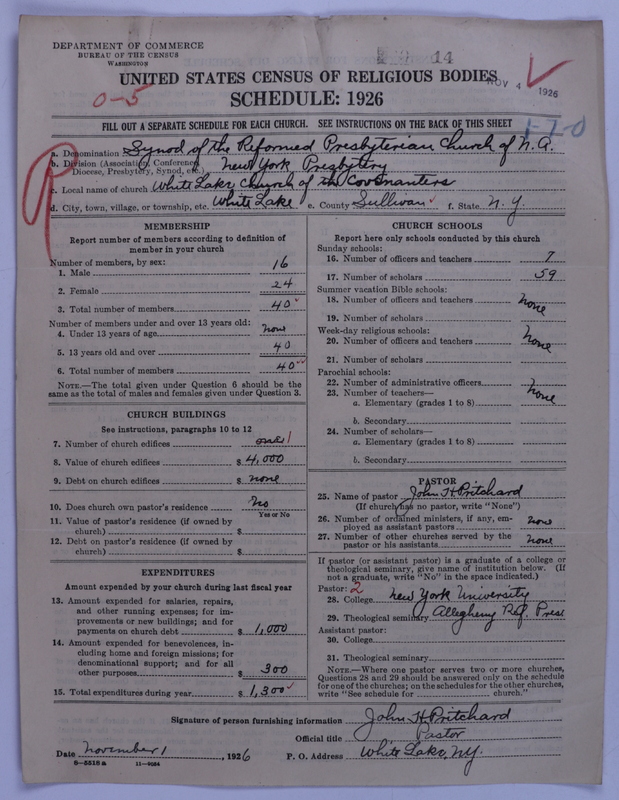 DEPARTMENT OF COMMERCE
BUREAU OF THE CENSUS
WASHINGTON
14
UNITED STATES CENSUS OF RELIGIOUS BODIES
NOV 4 1926
0-5
SCHEDULE: 1926
FILL OUT A SEPARATE SCHEDULE FOR EACH CHURCH. SEE INSTRUCTIONS ON THE BACK OF THIS SHEET
1-7-0
a. Denomination Synod of the Reformed Presbyterian Church of N.A.
b. Division (Association, Conference, Diocese, Presbytery, Synod, etc.) New York Presbytry
c. Local name of church White Lake Church of the Covenanters
d. City, town, village, or township, etc. White Lake e. County Sullivan f. State N.Y.
MEMBERSHIP
Report number of members according to definition of
member in your church
Number of members, by sex:
1. Male 16
2. Female 24
3. Total number of members 40
Number of members under and over 13 years old:
4. Under 13 years of age none
5. 13 years old and over 40
6. Total number of members 40
NOTE.—The total given under Question 6 should be
same as the total of males and females given under Question 3.
CHURCH BUILDINGS
See instructions, paragraphs 10 to 12
7. Number of church edifices one 1
8. Value of church edifices $ 4,000
9. Debt on church edifices $ none
10. Does church own pastor's residence No
Yes or No
11. Value of pastor's residence (if owned by
church) $
12. Debt on pastor's residence (if owned by
church) $
EXPENDITURES
Amount expended by your church during last fiscal year
13. Amount expended for salaries, repairs,
and other running expenses; for im-
provements or new buildings; and for
payments on church debt $ 1,000
14. Amount expended for benevolences, in-
cluding home and foreign missions; for
denominational support; and for all
other purposes $ 300
15. Total expenditures during year $ 1,300
CHURCH SCHOOLS
Report here only schools conducted by this church
Sunday schools:
16. Number of officers and teachers 7
17. Number of scholars 59
Summer vacation Bible schools:
18. Number of officers and teachers none
19. Number of scholars
Week-day religious schools:
20. Number of officers and teachers none
21. Number of scholars
Parochial schools:
22. Number of administrative officers
23. Number of teachers— none
a. Elementary (grades 1 to 8)
b. Secondary
24. Number of scholars—
a. Elementary (grades 1 to 8)
b. Secondary
PASTOR
25. Name of pastor John H Pritchard
(If church has no pastor, write "None")
26. Number of ordained ministers, if any, em-
ployed as assistant pastors none
27. Number of other churches served by the
pastor or his assistants none
If pastor (or assistant pastor) is a graduate of a college or
theological seminary, give name of institution below. (If
not a graduate, write "No" in the space indicated.)
Pastor: 2
28. College New York University
29. Theological seminary Allegheny Ref. Pres
Assistant pastor:
30. College
31. Theological seminary
NOTE.—Where one pastor serves two or more churches,
Questions 28 and 29 should be answered only on the schedule
for one of the churches; on the schedules for the other churches,
write "See schedule for church."
Signature of person furnishing information John H Pritchard
Official title Pastor
Date November 1, 1926 P. O. Address White Lake, N.Y.
8-5518 a 11-9034